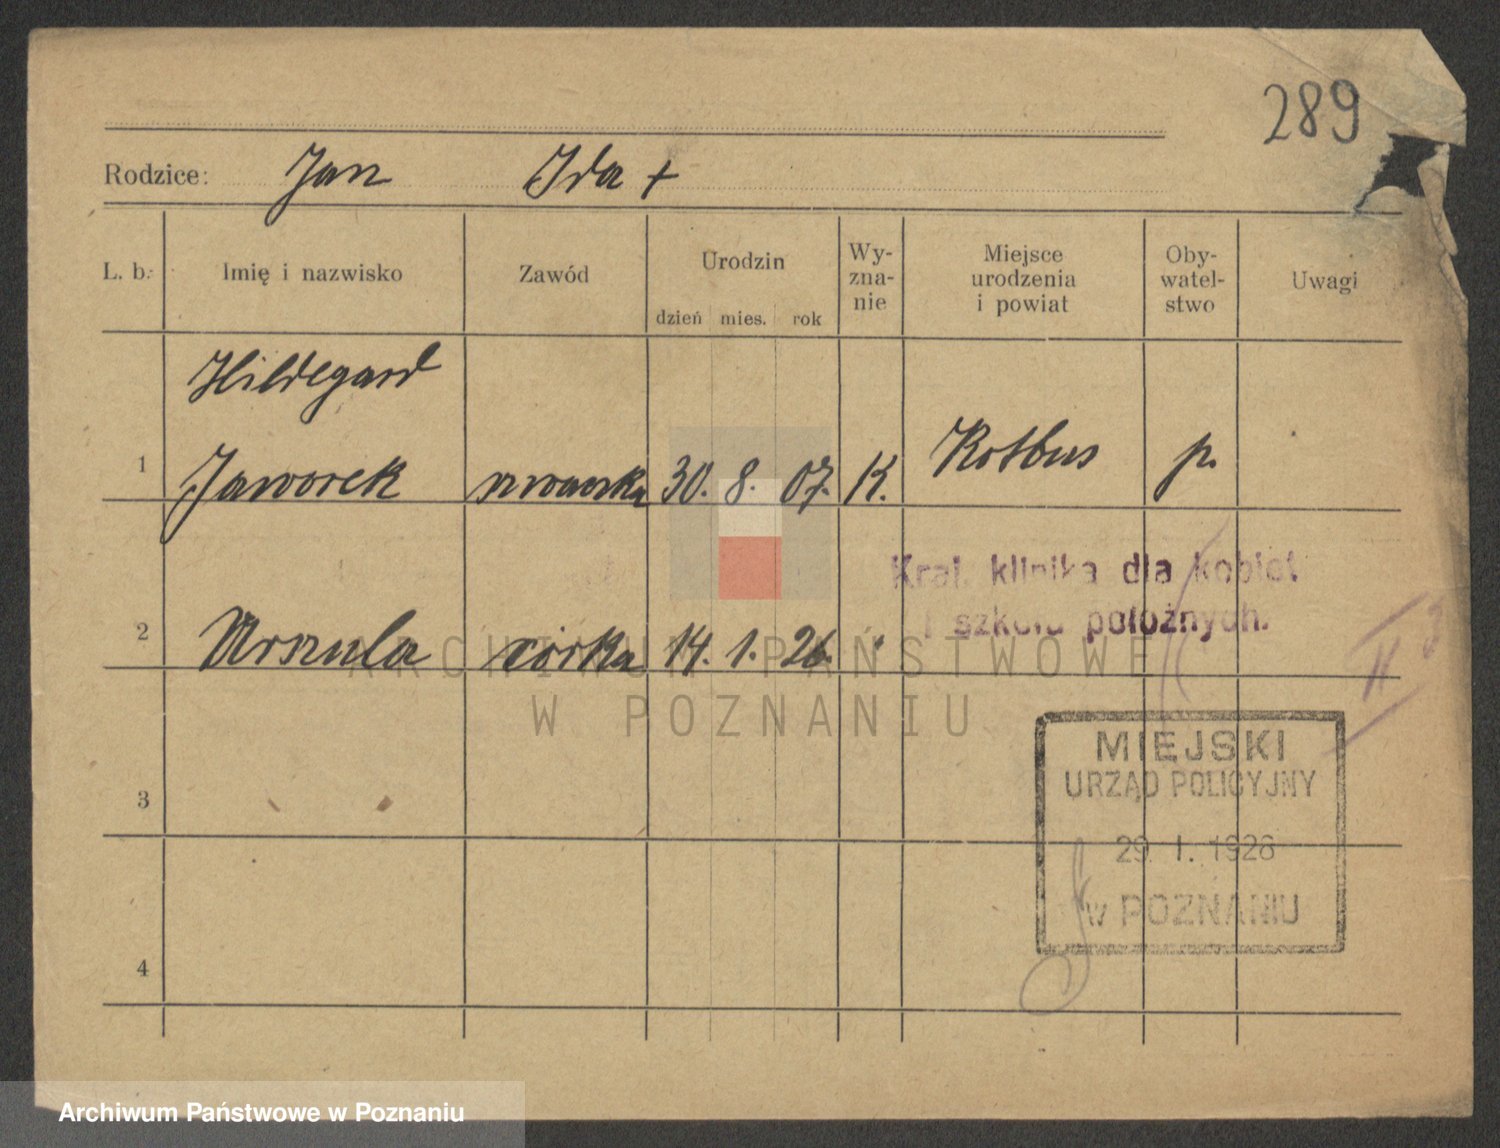 289
Rodzice: Jan Ida +
L. b. Imię i nazwisko Zawód Urodzin dzień mies. rok Wy-zna-nie Miejsce urodzenia i powiat Oby-watel-stwo Uwagi
Hildegard
1 Jaworek 30. 8. 07. K. Kotbus p.
Kraj. klinika dla kobiet
i szkoła położnych.
2 Urszula córka 14. 1. 26. "
II
ARCHIWUM PAŃSTWOWE
W POZNANIU
MIEJSKI
URZĄD POLICYJNY
3
29. I. 1926
w POZNANIU
4
Archiwum Państwowe w Poznaniu